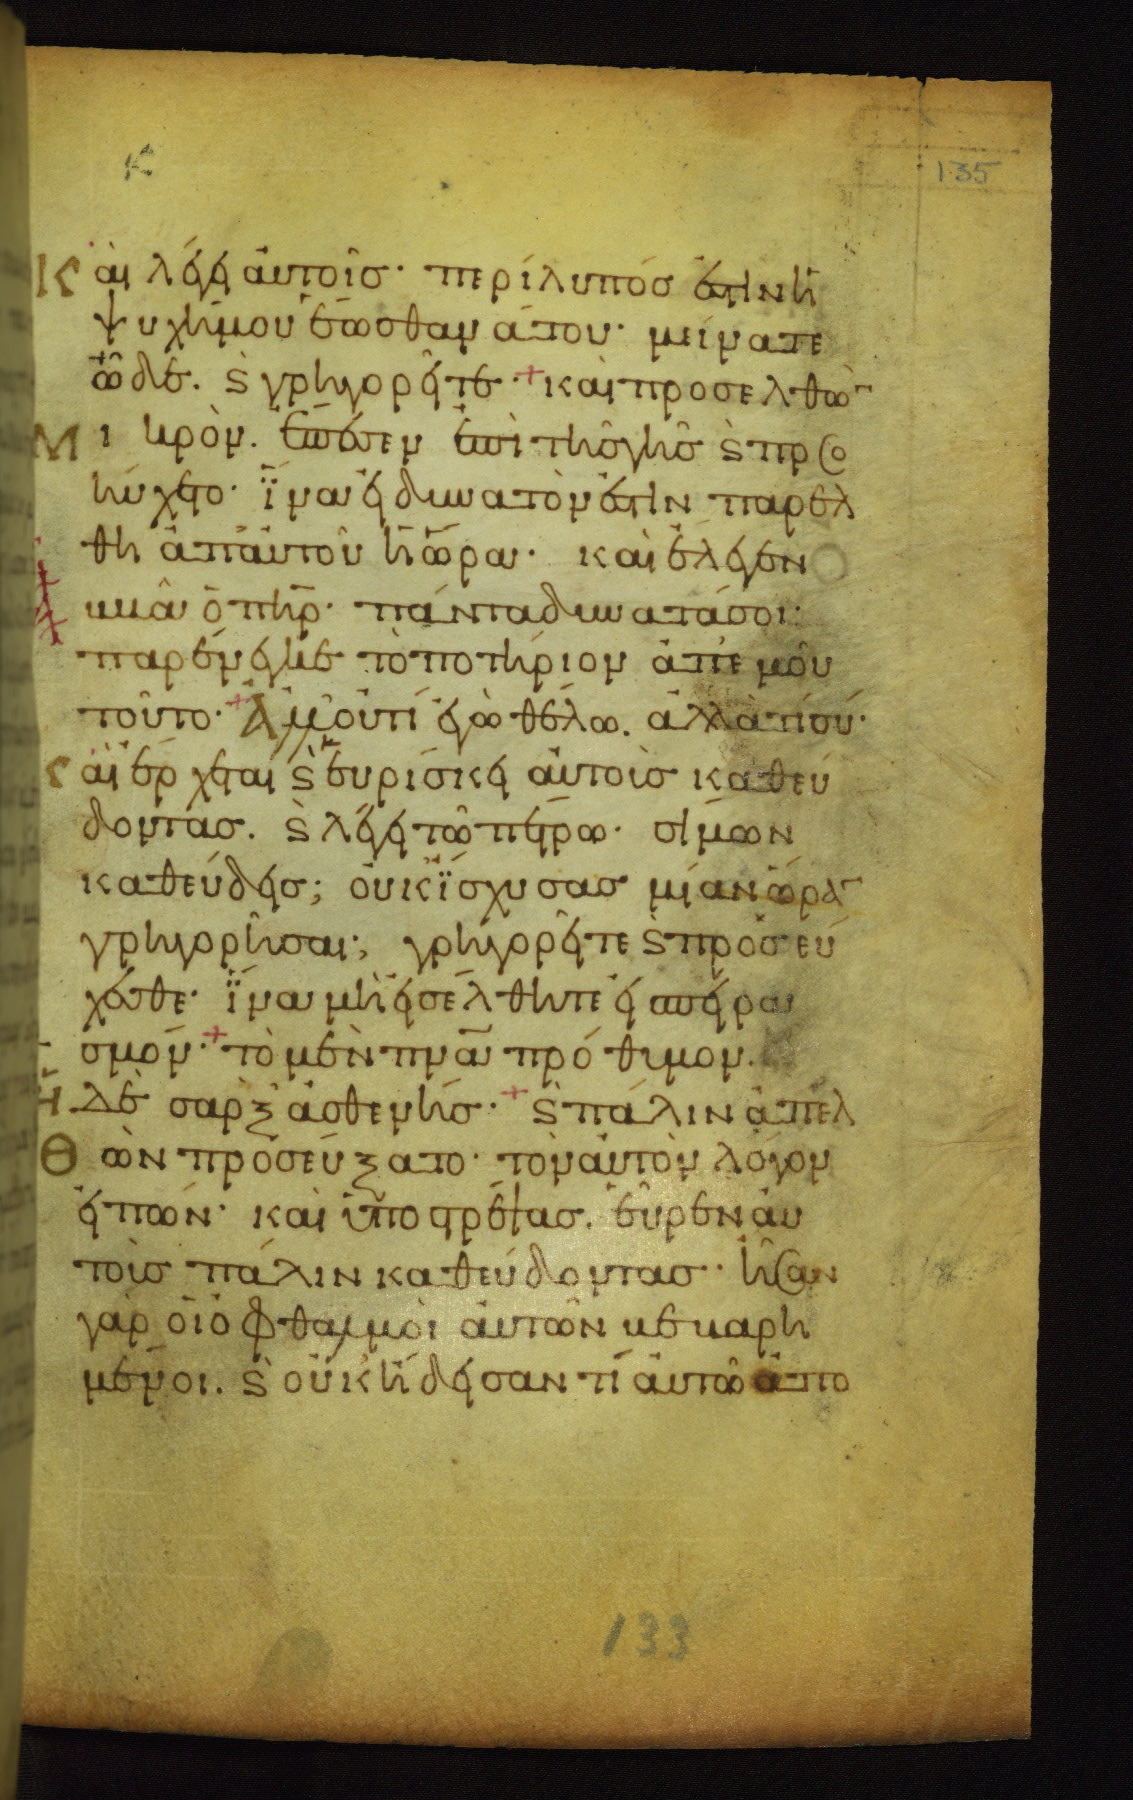 135
Καὶ λέγει αὐτοῖς· περίλυπός ἐστιν ἡ
ψυχή μου ἕως θανάτου· μείνατε
ὧδε. ϗ γρηγορεῖτε· + καὶ προσελθὼ¯
Μικρὸν. ἔπεσεν ἐπὶ τῆς γῆς ϗ προσ
ηύχετο· ἵνα εἰ δυνατὸν ἐστὶν παρέλ
θη ἀπ' αὐτοῦ ἡ ὥρα· καὶ ἔλεγεν
ἀββᾶ ὁ πη̄ρ· πάντα δυνατά σοι·
παρένεγκε τὸ ποτήριον ἀπ' ἐμοῦ
τοῦτο· + Ἀλλ' οὐ τί ἐγὼ θέλω. ἀλλὰ τί σύ·
Καὶ ἔρχεται ϗ εὑρίσκει αὐτοὺς καθεύ
δοντας. ϗ λέγει τῶ πέτρω· σίμων
καθεύδεις; οὐκ ἴσχυσας μίαν ὥρα¯
γρηγορῆσαι; γρηγορεῖτε ϗ προσεύ
χεσθε· ἵνα μὴ εἰσέλθητε εἰς πειρα
σμόν· + τὸ μὲν πν̄α πρόθυμον.
ἡ δὲ σὰρξ ἀσθενής· + ϗ πάλιν ἀπελ
Θὼν προσεύξατο· τὸν αὐτὸν λόγον
εἰπών· καὶ ὑποστρέψας. εὗρεν αὐ
τοὺς πάλιν καθεύδοντας· ἦσαν
γὰρ οἱ ὀφθαλμοὶ αὐτῶν κεκαρη
μένοι. ϗ οὐκ ἤδεισαν τί αὐτῶ ἀπο
133